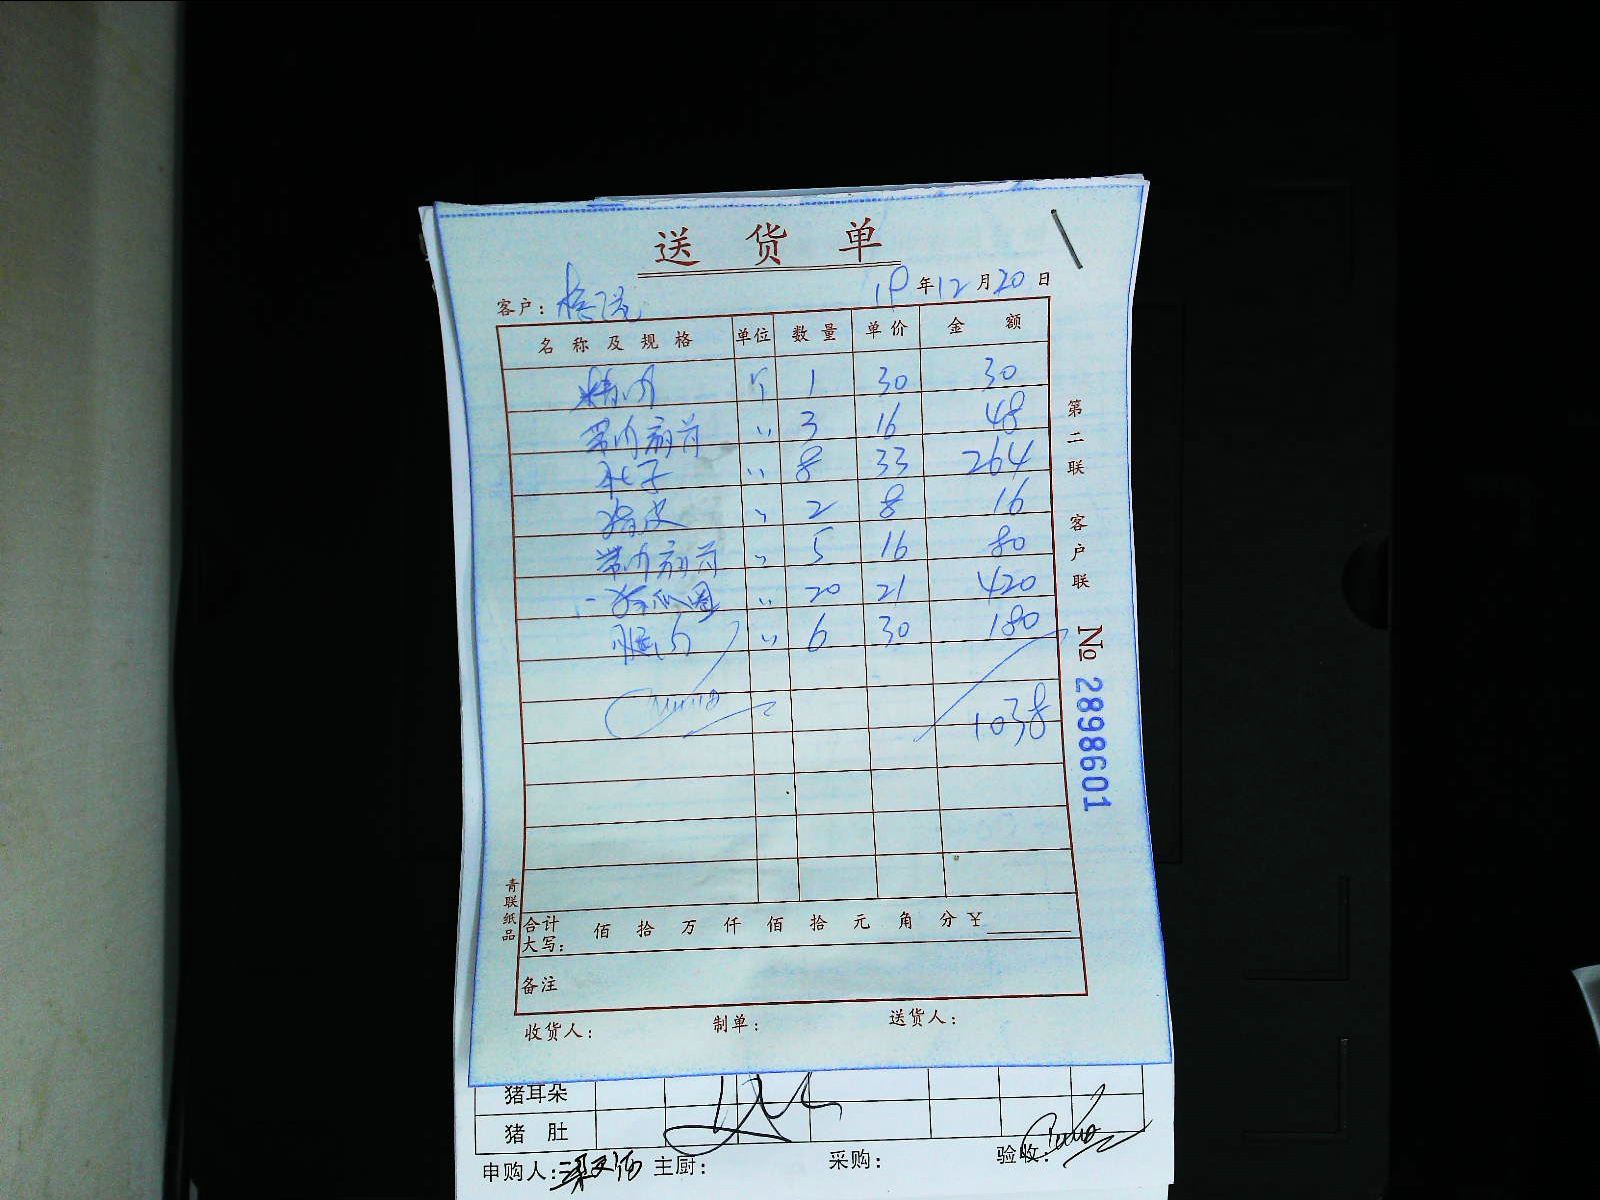 送货单
客户： 19年12月20日
名称及规格 单位 数量 单价 金额
精肉 斤 1 30 30
带肉扇骨 〃 3 16 48
肚子 〃 8 33 264
猪皮 〃 2 8 16
带肉扇骨 〃 5 16 80
〃 20 21 420
腿肉 〃 6 30 180
1038
合计大写： 佰 拾 万 仟 佰 拾 元 角 分 ¥
备注
收货人： 制单： 送货人：
第二联 客户联
№ 2898601
青联纸品
猪耳朵
猪肚
申购人： 主厨： 采购： 验收：